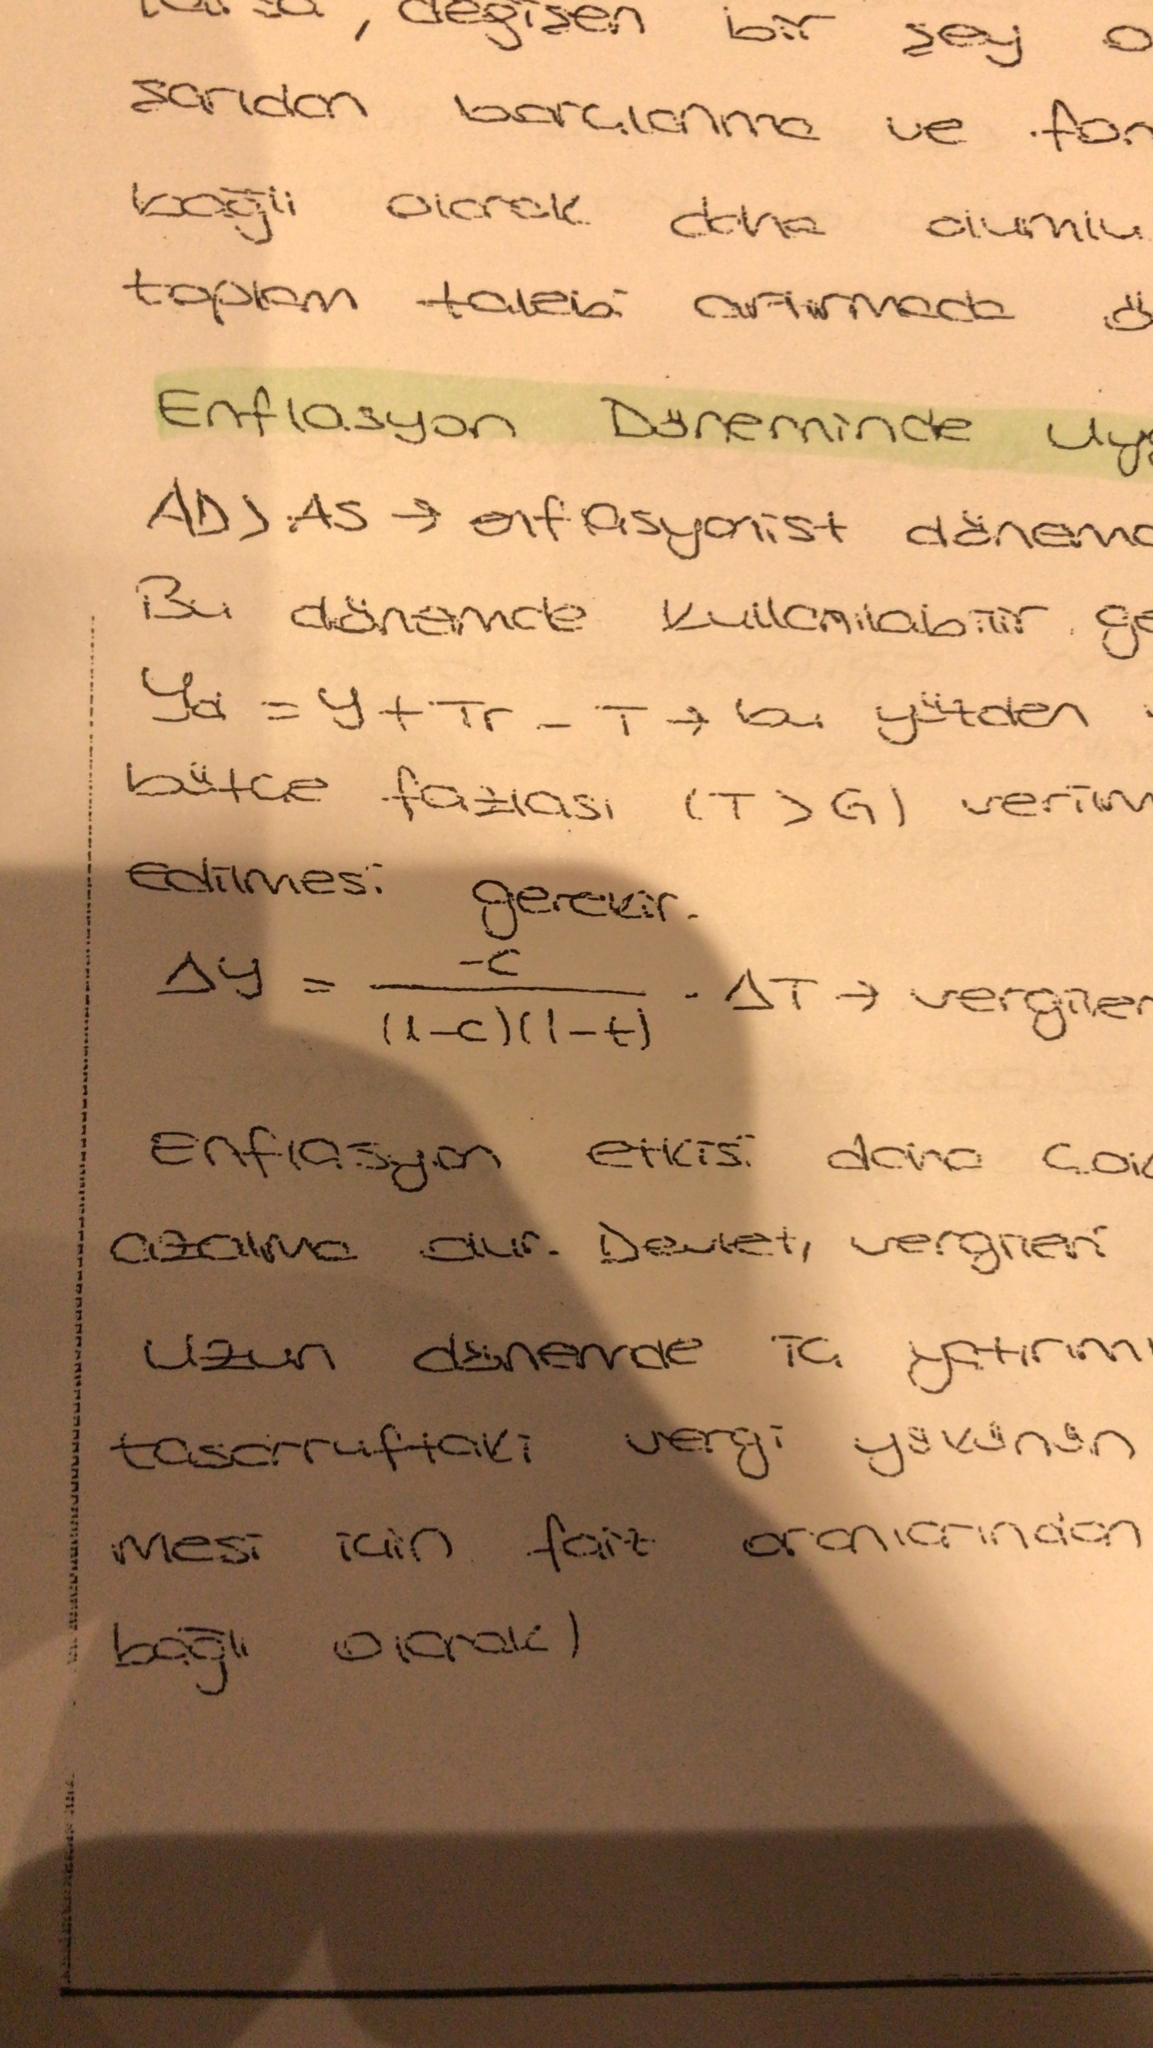 , değişen bir şey
şarıdan borçlanma ve
bağlı olarak daha
toplam talebi artırmada
Enflasyon Döneminde
AD > AS → enflasyonist
Bu dönemde kullanılabilir
Yd = Y + Tr - T → bu yüzden
bütçe fazlası (T > G)
edilmesi gerekir.
ΔY = -c / (1-c)(1-t) · ΔT →
Enflasyon etkisi daha
azalma olur. Devlet, vergileri
Uzun dönemde iç
tasarruftaki vergi yükünün
mesi için faiz oranlarından
bağlı olarak)